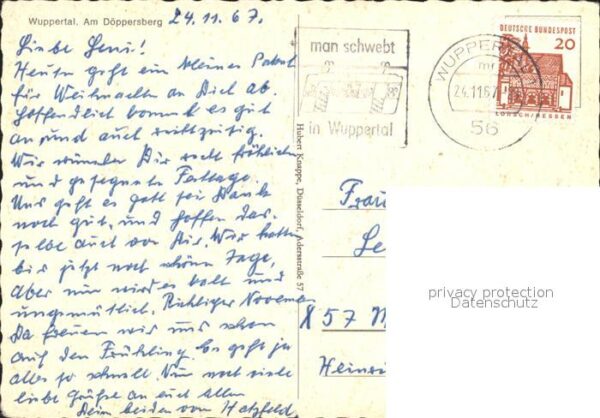 Wuppertal. Am Döppersberg
24.11.67.
Liebe Leni!
Heute geht ein kleines Paket
für Weihnachten an Dich ab.
Hoffendlich kommt es gut
an und auch rechtzeitig.
Wir wünschen Dir recht fröhliche
und gesegnete Festtage.
Uns geht es Gott sei Dank
noch gut, und hoffen das-
selbe auch von Dir. Wir hatten
bis jetzt noch schöne Tage,
Aber nun wird es kalt und
ungemütlich. Richtiger November
Da freuen wir uns schon
auf den Frühling. Es geht ja
alles so schnell. Nun noch viele
liebe Grüße an euch allen
Dein beiden von Hatzfeld
Hubert Knappe, Düsseldorf, Adersstraße 57
man schwebt
in Wuppertal
WUPPERTAL
24.11.67
56
DEUTSCHE BUNDESPOST
20
LORSCH/HESSEN
Frau
Le
X 57 M
Heinri
privacy protection
Datenschutz